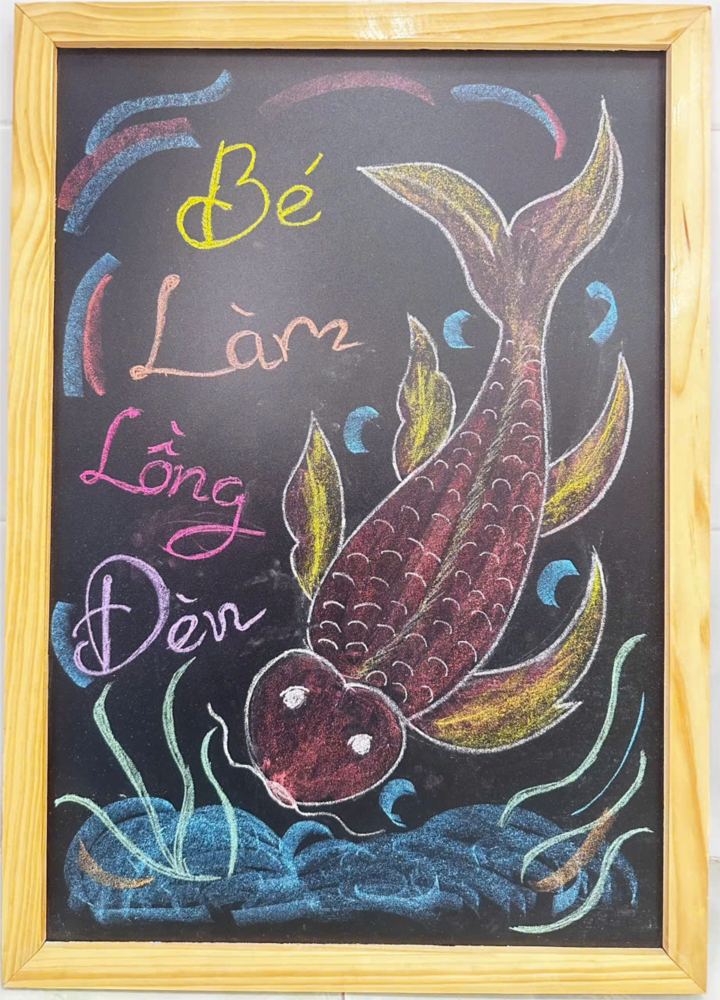 Bé
Làm
Lồng
Đèn